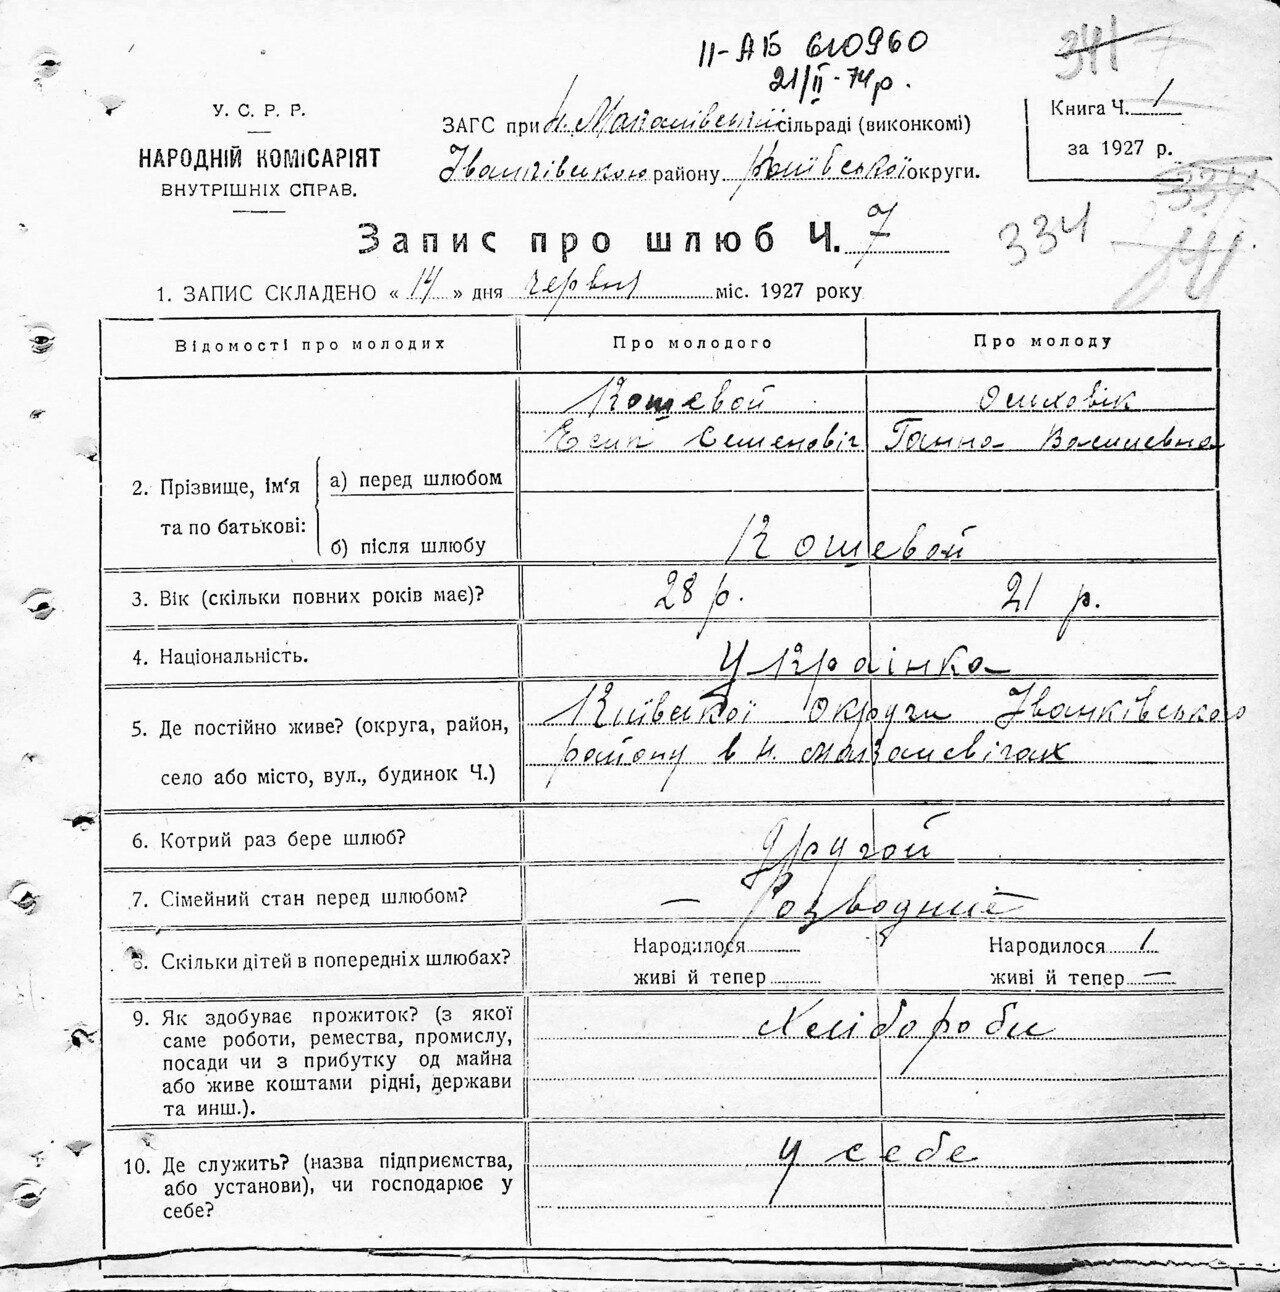 II-АБ 610960
21/II-74 р.
341 7
У. С. Р. Р.
НАРОДНІЙ КОМІСАРІЯТ
ВНУТРІШНІХ СПРАВ.
ЗАГС при Н. сільраді (виконкомі)
Іванківського району Київської округи.
Книга Ч. 1
за 1927 р.
334
334
Запис про шлюб Ч. 7
141
1. ЗАПИС СКЛАДЕНО « 14 » дня червня міс. 1927 року
Відомості про молодих Про молодого Про молоду
Кошевой Осиховік
Есип Семеновіг Ганна Василевна
2. Прізвище, ім'я та по батькові:
а) перед шлюбом
б) після шлюбу Кошевой
3. Вік (скільки повних років має)? 28 р. 21 р.
4. Національність. Українка
5. Де постійно живе? (округа, район, село або місто, вул., будинок Ч.)
Київської округи Іванківського
району в н.
6. Котрий раз бере шлюб? другой
7. Сімейний стан перед шлюбом? — Розводниє
8. Скільки дітей в попередніх шлюбах?
Народилося Народилося 1
живі й тепер живі й тепер —
9. Як здобуває прожиток? (з якої Хлібороби
саме роботи, ремества, промислу,
посади чи з прибутку од майна
або живе коштами рідні, держави
та инш.).
10. Де служить? (назва підприємства, У себе
або установи), чи господарює у
себе?